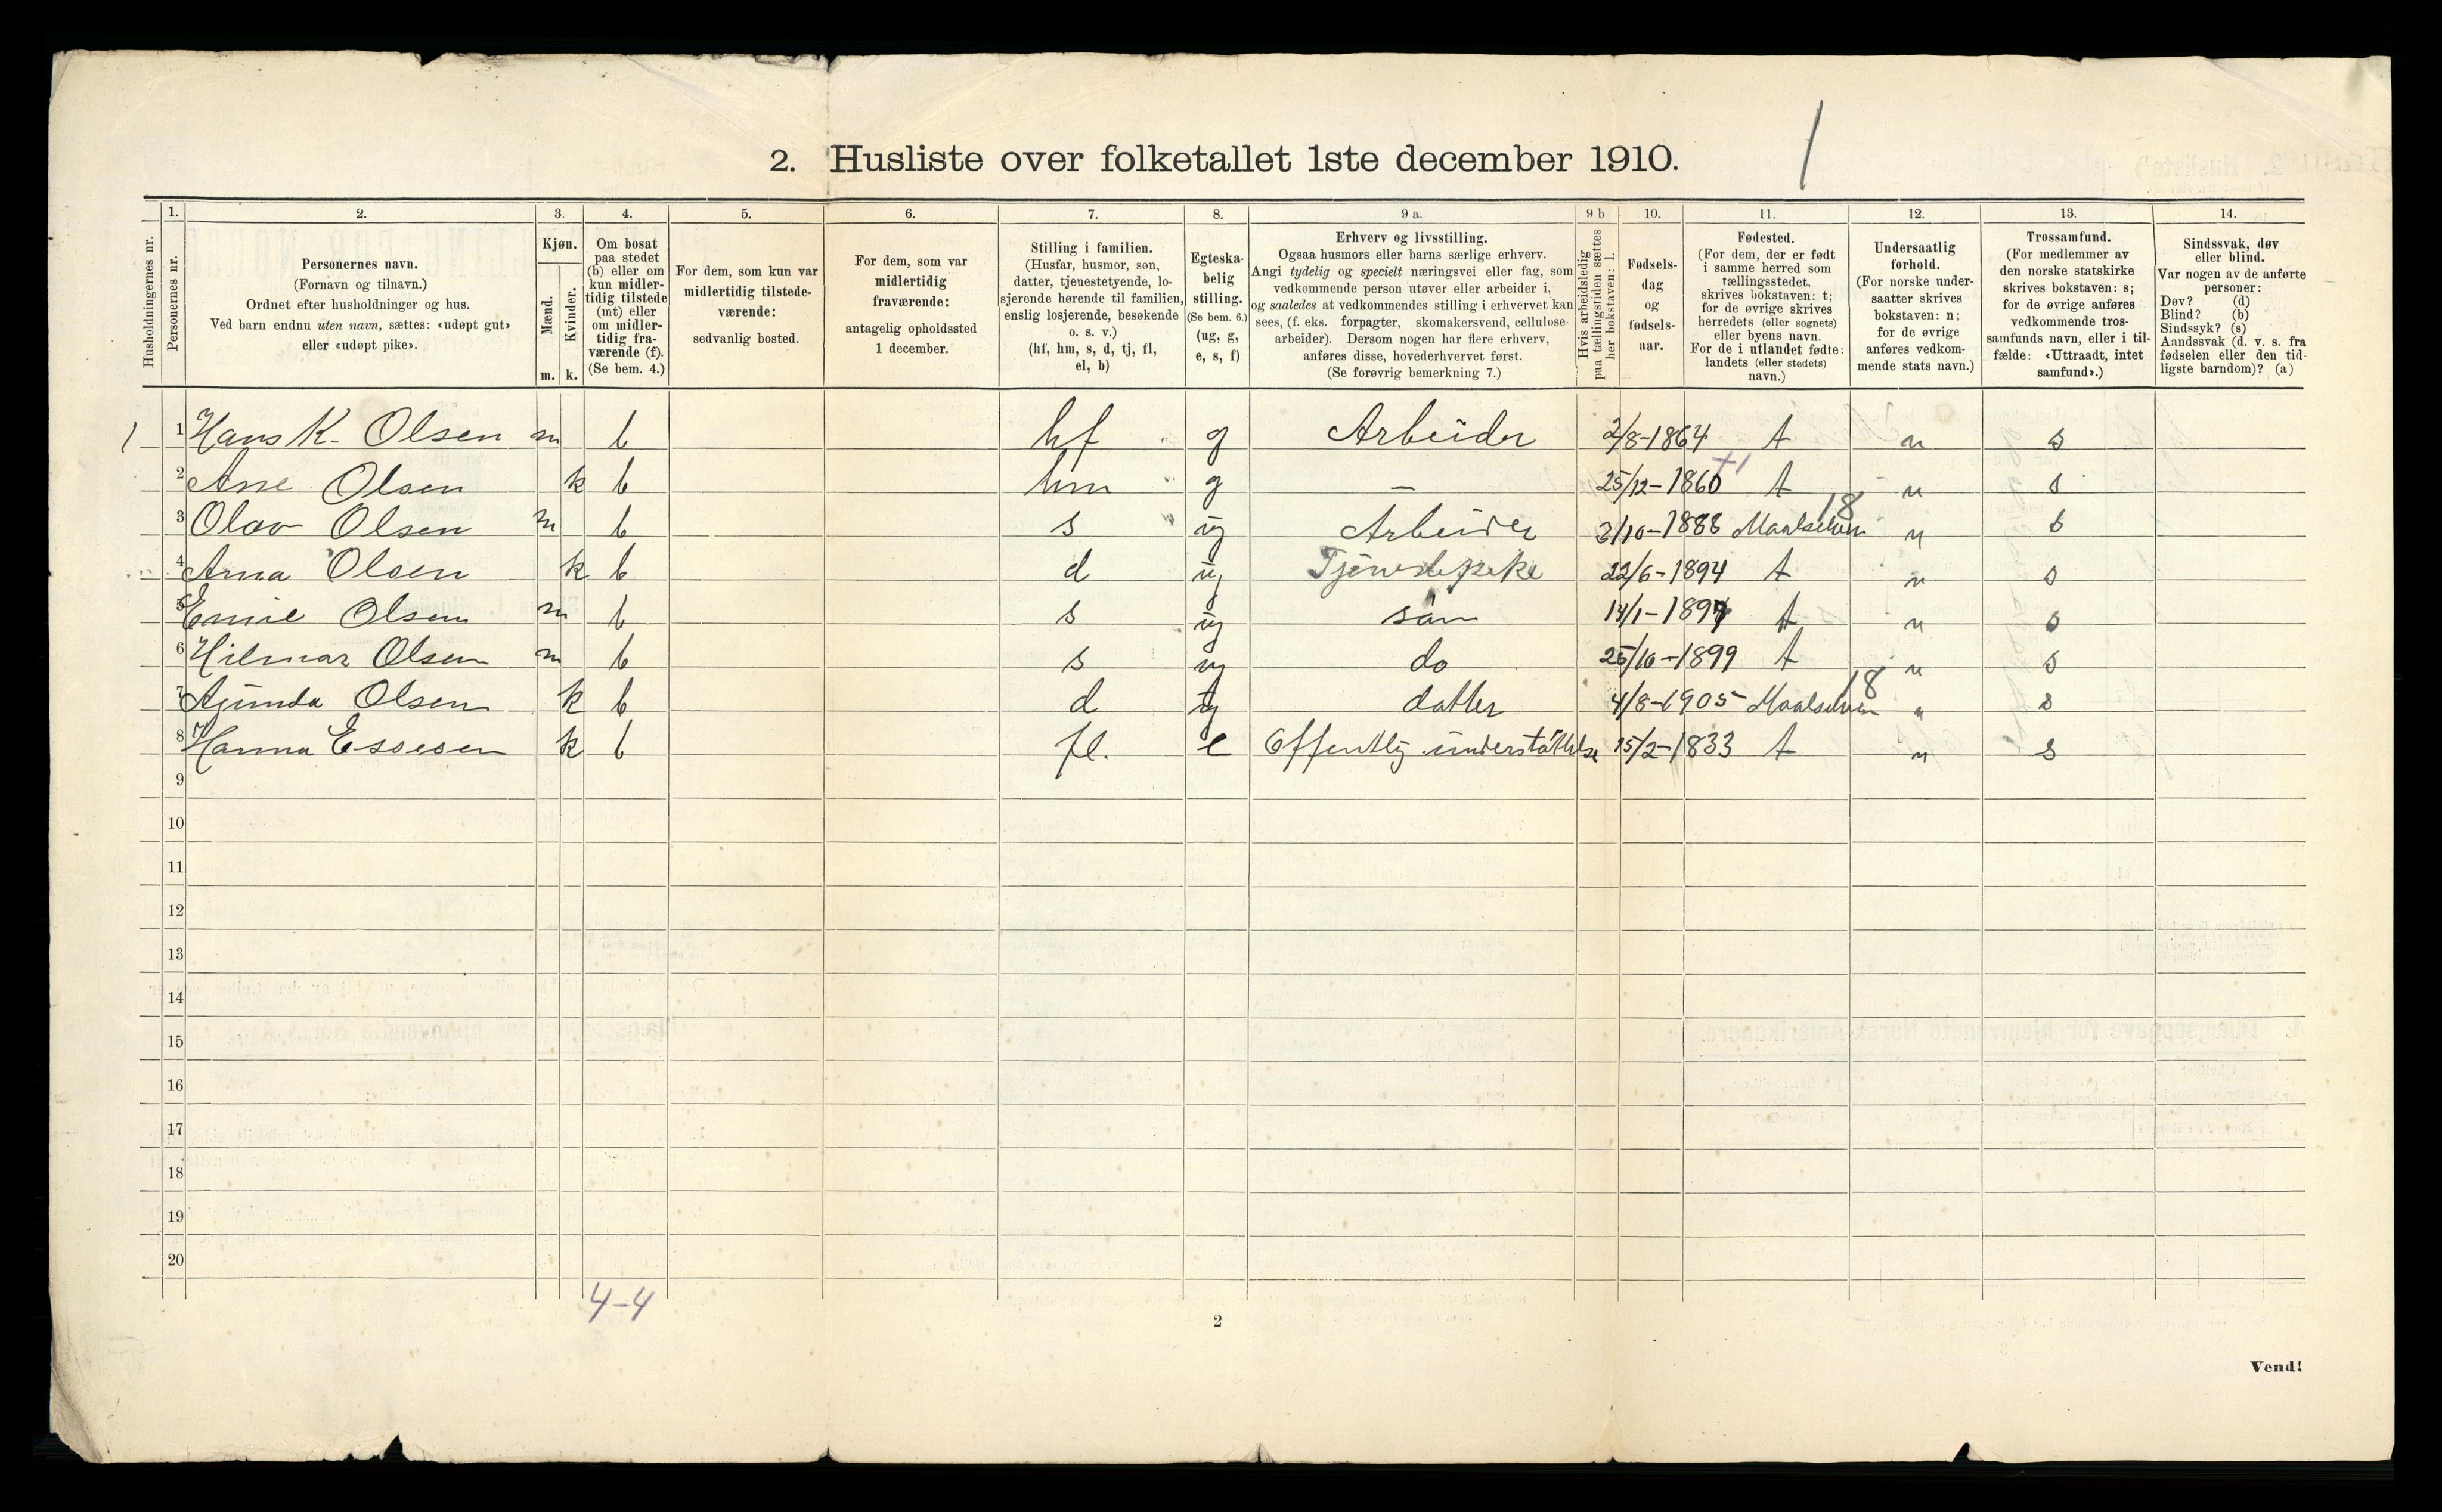 1
2. Husliste over folketallet 1ste december 1910.
Husholdningernes nr.
1.
Personernes nr.
2.
Personernes navn.
(Fornavn og tilnavn.)
Ordnet efter husholdninger og hus.
Ved barn endnu uten navn, sættes: «udøpt gut»
eller «udøpt pike».
3.
Kjøn.
Mænd.
Kvinder.
m. k.
4.
Om bosat
paa stedet
(b) eller om
kun midler-
tidig tilstede
(mt) eller
om midler-
tidig fra-
værende (f).
(Se bem. 4.)
5.
For dem, som kun var
midlertidig tilstede-
værende:
sedvanlig bosted.
6.
For dem, som var
midlertidig
fraværende:
antagelig opholdssted
1 december.
7.
Stilling i familien.
(Husfar, husmor, søn,
datter, tjenestetyende, lo-
sjerende hørende til familien,
enslig losjerende, besøkende
o. s. v.)
(hf, hm, s, d, tj, fl,
el, b)
8.
Egteska-
belig
stilling.
(Se bem. 6.)
(ug, g,
e, s, f)
9 a.
Erhverv og livsstilling.
Ogsaa husmors eller barns særlige erhverv.
Angi tydelig og specielt næringsvei eller fag, som
vedkommende person utøver eller arbeider i,
og saaledes at vedkommendes stilling i erhvervet kan
sees, (f. eks. forpagter, skomakersvend, cellulose-
arbeider). Dersom nogen har flere erhverv,
anføres disse, hovederhvervet først.
(Se forøvrig bemerkning 7.)
9 b
Hvis arbeidsledig
paa tællingstiden sættes
her bokstaven: l.
10.
Fødsels-
dag
og
fødsels-
aar.
11.
Fødested.
(For dem, der er født
i samme herred som
tællingsstedet,
skrives bokstaven: t;
for de øvrige skrives
herredets (eller sognets)
eller byens navn.
For de i utlandet fødte:
landets (eller stedets)
navn.)
12.
Undersaatlig
forhold.
(For norske under-
saatter skrives
bokstaven: n;
for de øvrige
anføres vedkom-
mende stats navn.)
13.
Trossamfund.
(For medlemmer av
den norske statskirke
skrives bokstaven: s;
for de øvrige anføres
vedkommende tros-
samfunds navn, eller i til-
fælde: «Uttraadt, intet
samfund».)
14.
Sindssvak, døv
eller blind.
Var nogen av de anførte
personer:
Døv? (d)
Blind? (b)
Sindssyk? (s)
Aandssvak (d. v. s. fra
fødselen eller den tid-
ligste barndom)? (a)
1 1 Hans K. Olsen m b hf g Arbeider 2/8-1864 t n s
2 Ane Olsen k b hm g — 25/12-1860 t n s
3 Olav Olsen m b s ug Arbeider 2/10-1888 Maalselven 18 n s
4 Arna Olsen k b d ug Tjenestepike 22/6-1894 t n s
5 Emil Olsen m b s ug søn 14/1-1897 t n s
6 Hilmar Olsen m b s ug do 25/10-1899 t n s
7 Olsen k b d ug datter 4/8-1905 Maalselven 18 n s
8 Hanna Essesen k b fl. e Offentlig understøttelse 15/2-1833 t n s
9
10
11
12
13
14
15
16
17
18
19
20
4-4
2
Vend!